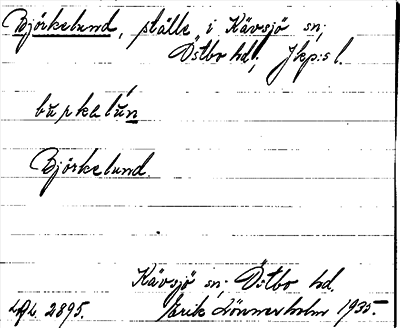 Björkelund, ställe i Kävsjö sn;
Östbo hd., Jkp:s l.
burkalún
Björkelund.
Kävsjö sn; Östbo hd.
2895. Erik Lönnerholm 1935.